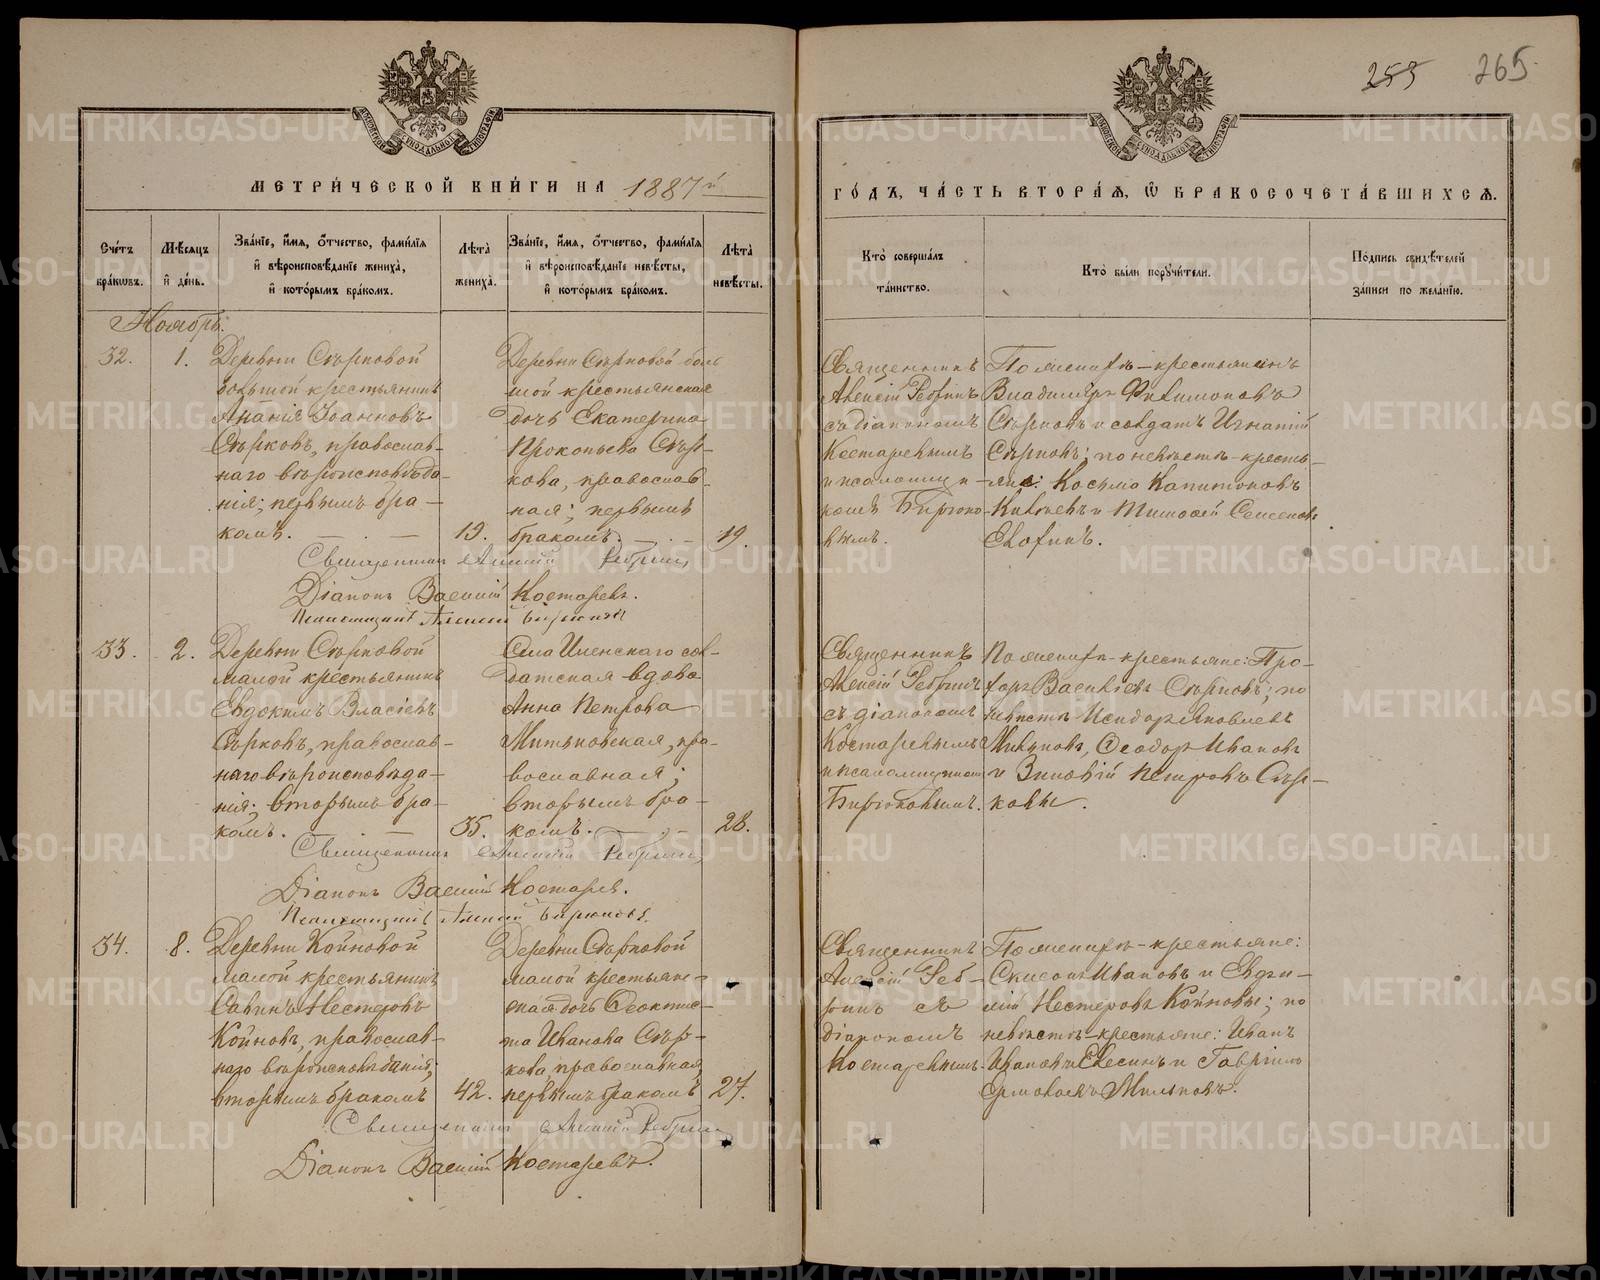 255 265
МЕТРИ́ЧЕСКОЙ КНИ́ГИ НА 1887й
ГО́ДЪ, ЧА́СТЬ ВТОРА́Ѧ, Ѽ БРАКОСОЧЕТА́ВШИХСѦ.
Сче́тъ бра́кѡвъ.
Мѣ́сяцъ и҆ де́нь.
Зва́нїе, и҆́мя, ѻ҆́тчество, фами́лїя
и҆ вѣроисповѣ́данїе жениха̀,
и҆ кото́рымъ бра́комъ.
Лѣта̀ жениха̀.
Зва́нїе, и҆́мя, ѻ҆́тчество, фами́лїя
и҆ вѣроисповѣ́данїе невѣ́сты,
и҆ кото́рымъ бра́комъ.
Лѣта̀ невѣ́сты.
Кто̀ соверша́лъ та́инство.
Кто̀ бы́ли поручи́тели.
По́дпись свидѣ́телей за́писи по жела́нїю.
Ноябрь.
32.
1.
Деревни Сѣрковой
большой крестьянинъ
Ананія Іоанновъ
Сѣрковъ, православ-
наго вѣроисповѣда-
нія; первымъ бра-
комъ.
19.
Деревни Сѣрковой боль
шой крестьянская
дочь Екатерина
Прокопьева Сѣр-
кова, православ-
ная; первымъ
бракомъ.
19.
Священникъ
Алексій Ребринъ
съ діакономъ
Костаревымъ
и псаломщи-
комъ Бирюко-
вымъ.
По женихѣ-крестьянинъ
Владиміръ Филимоновъ
Сѣрковъ и солдатъ Игнатій
Сѣрковъ; по невѣстѣ-кресть-
яне: Косьма Капитоновъ
и Тимофей Семеновъ
Священникъ Алексій Ребринъ
Діаконъ Василій Костаревъ.
Псаломщикъ Алексій Бирюковъ
33.
2.
Деревни Сѣрковой
малой крестьянинъ
Евдокимъ Власіевъ
Сѣрковъ, православ-
наго вѣроисповѣда-
нія; вторымъ бра-
комъ.
35.
Села Иленскаго сол-
датская вдова
Анна Петрова
Митьковская, пра-
вославная;
вторымъ бра-
комъ.
28.
Священникъ
Алексій Ребринъ
съ діакономъ
Костаревымъ
и псаломщикомъ
Бирюковымъ.
По женихѣ-крестьяне: Про-
хоръ Васильевъ Сѣрковъ; по
невѣстѣ Исидоръ Яковлевъ
Ѳеодоръ Ивановъ
и Зиновій Петровъ Сѣр-
ковы.
Священникъ Алексій Ребринъ
Діаконъ Василій Костаревъ.
Псаломщикъ Алексій Бирюковъ.
34.
8.
Деревни Койновой
малой крестьянинъ
Савинъ Нестеровъ
Койновъ, православ-
наго вѣроисповѣданія;
вторымъ бракомъ
42.
Деревни Сѣрковой
малой крестьян-
ская дочь Ѳеоктис-
та Иванова Сѣр-
кова, православная,
первымъ бракомъ
27.
Священникъ
Алексій Реб-
ринъ съ
діакономъ
Костаревымъ.
По женихѣ-крестьяне:
Ивановъ и Евдо-
Нестеровъ Койновы; по
невѣстѣ-крестьяне: Иванъ
Ивановъ и Гавріилъ
Священникъ Алексій Ребринъ
Діаконъ Василій Костаревъ.
METRIKI.GASO-URAL.RU